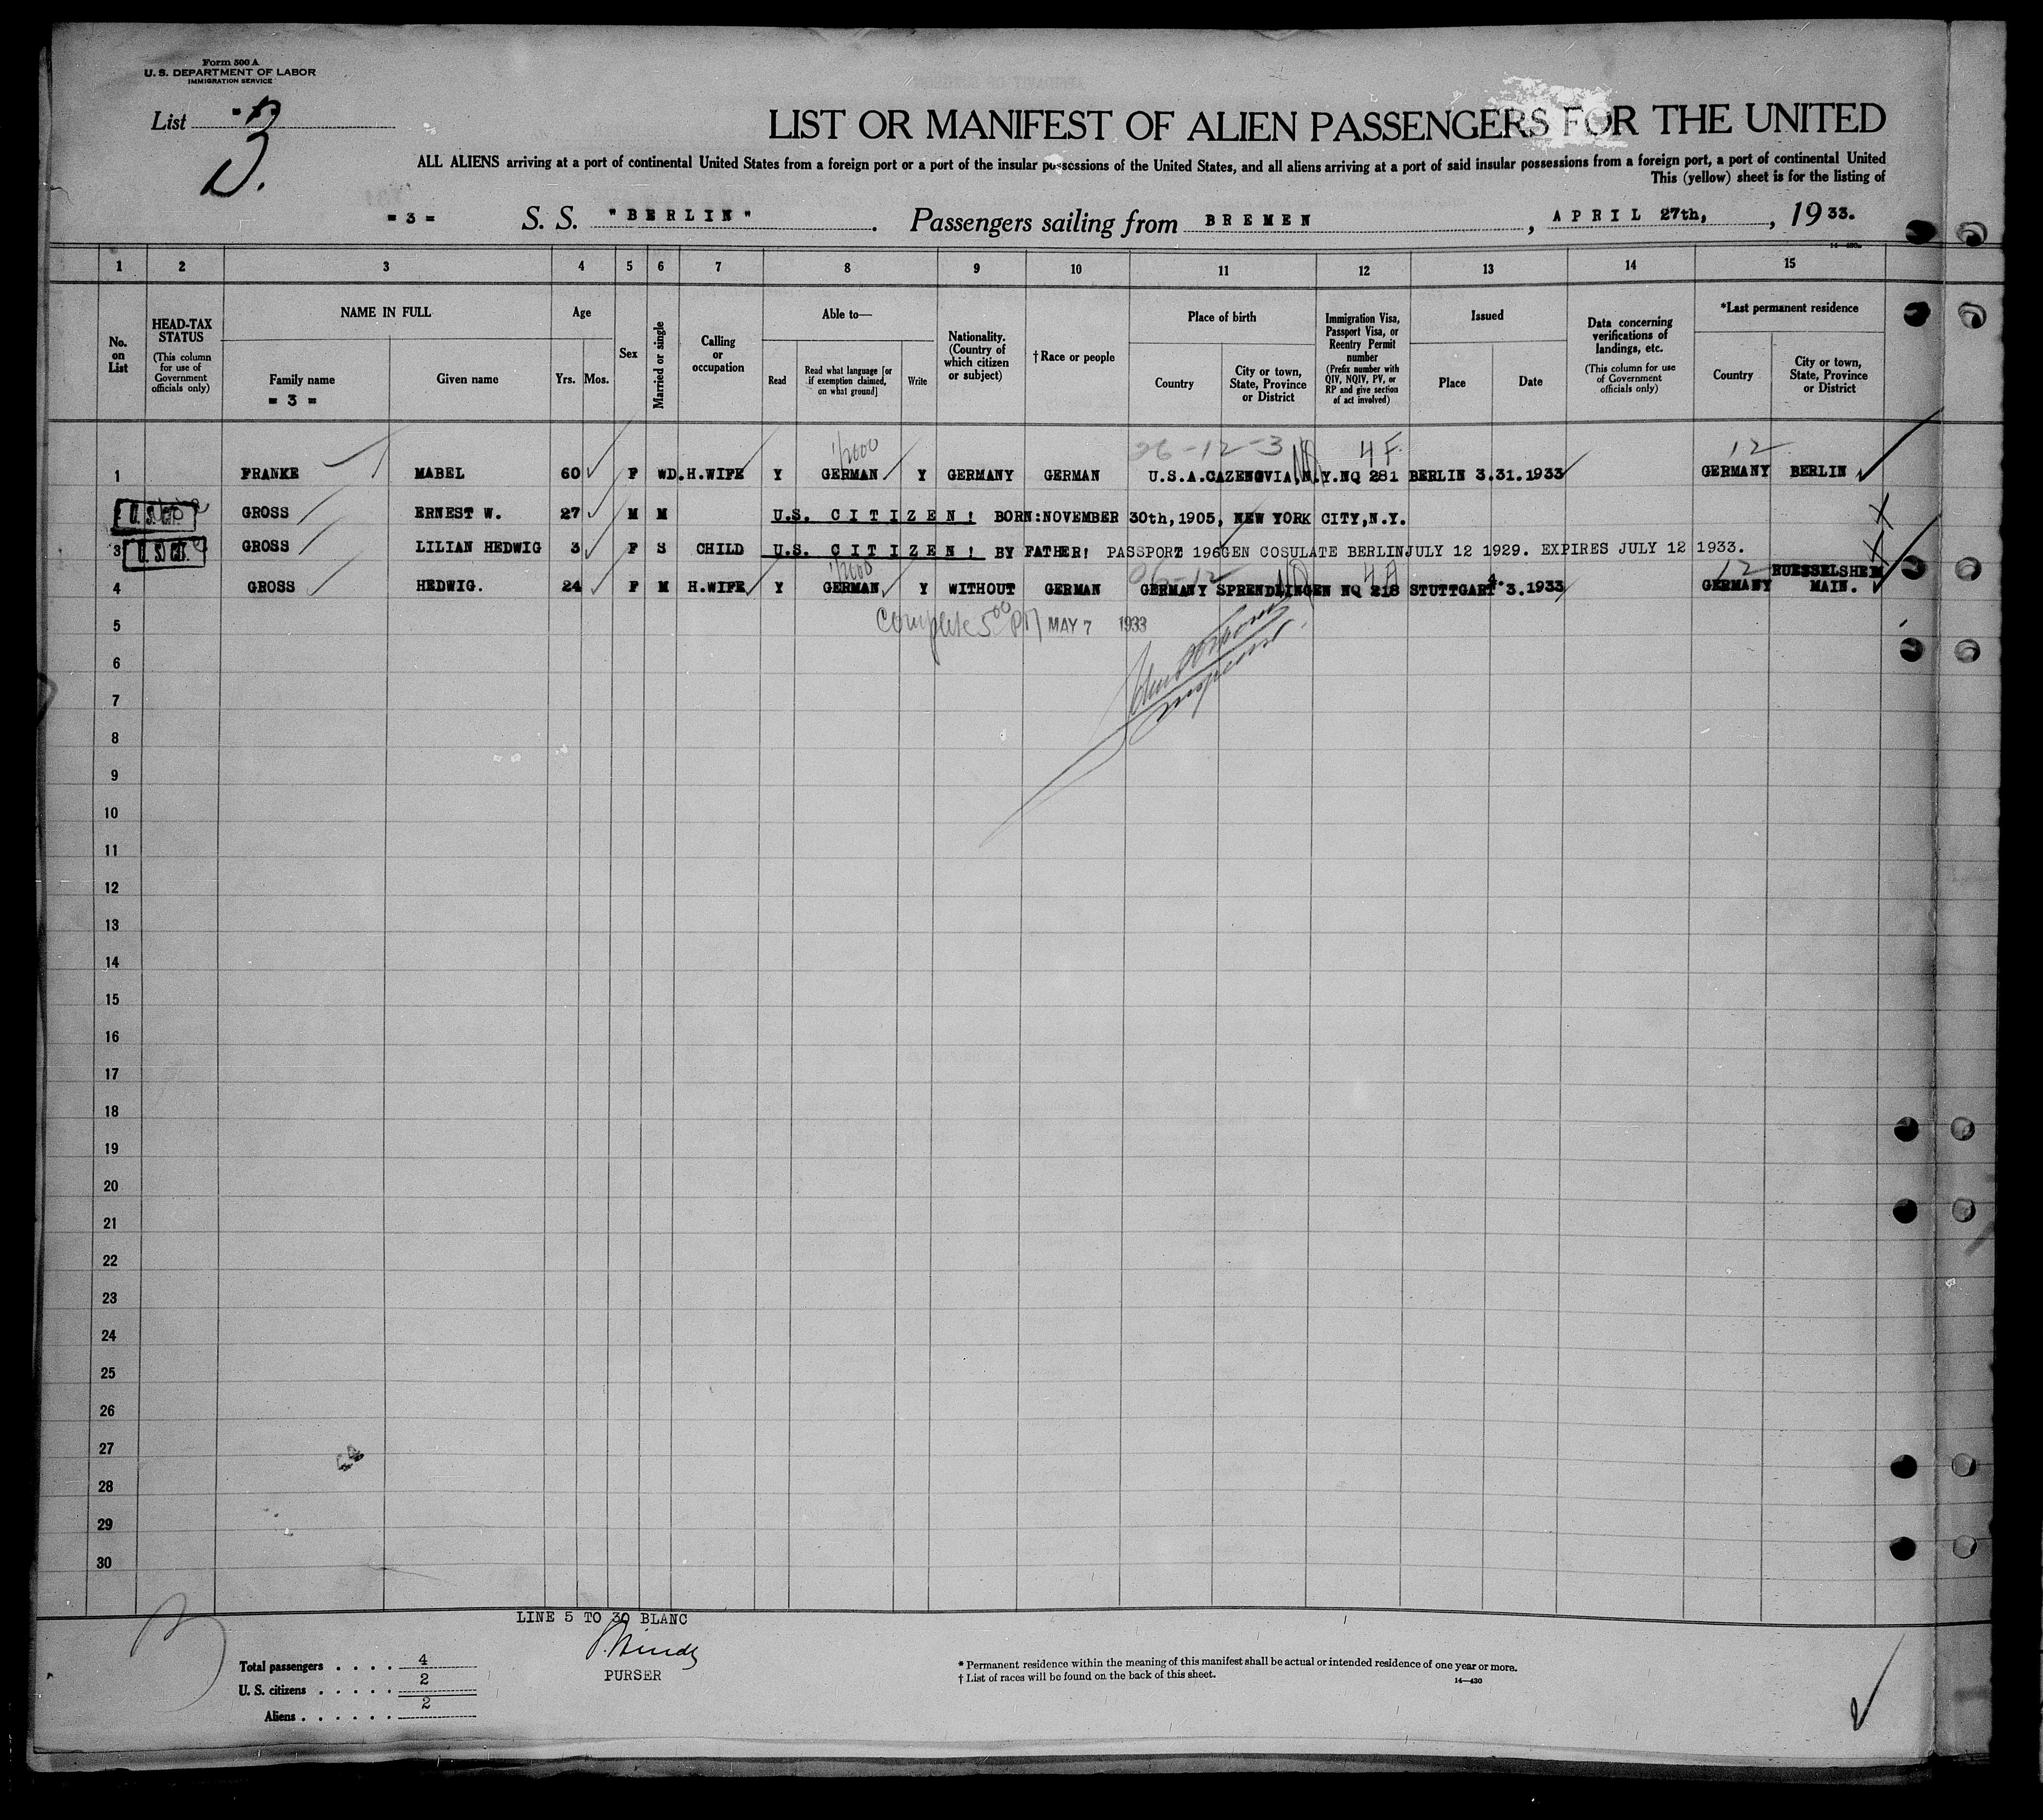 Form 500 A
U. S. DEPARTMENT OF LABOR
IMMIGRATION SERVICE
List
3.
LIST OR MANIFEST OF ALIEN PASSENGERS FOR THE UNITED
ALL ALIENS arriving at a port of continental United States from a foreign port or a port of the insular possessions of the United States, and all aliens arriving at a port of said insular possessions from a foreign port, a port of continental United
This (yellow) sheet is for the listing of
= 3 = S. S. "BERLIN". Passengers sailing from BREMEN, APRIL 27th, , 1933.
14—430
1 2 3 4 5 6 7 8 9 10 11 12 13 14 15
No. on List
HEAD-TAX STATUS (This column for use of Government officials only)
NAME IN FULL
Family name
= 3 =
Given name
Age
Yrs. Mos.
Sex
Married or single
Calling or occupation
Able to—
Read
Read what language [or if exemption claimed, on what ground]
Write
Nationality. (Country of which citizen or subject)
†Race or people
Place of birth
Country
City or town, State, Province or District
Immigration Visa, Passport Visa, or Reentry Permit number (Prefix number with QIV, NQIV, PV, or RP and give section of act involved)
Issued
Place
Date
Data concerning verifications of landings, etc. (This column for use of Government officials only)
*Last permanent residence
Country
City or town, State, Province or District
26-12-3 4F 12
1 FRANKE MABEL 60 F WD. H.WIFE Y GERMAN Y GERMANY GERMAN U.S.A. CAZENOVIA, N.Y. NQ 281 BERLIN 3.31.1933 GERMANY BERLIN
U.S. GROSS ERNEST W. 27 M M U.S. CITIZEN! BORN:NOVEMBER 30th,1905, NEW YORK CITY,N.Y.
3 U.S. GROSS LILIAN HEDWIG 3 F S CHILD U.S. CITIZEN! BY FATHER! PASSPORT 196GEN COSULATE BERLINJULY 12 1929. EXPIRES JULY 12 1933.
06-12 12
4 GROSS HEDWIG. 24 F M H.WIFE Y GERMAN Y WITHOUT GERMAN GERMANY SPRENDLINGEN NQ 218 STUTTGART 4. 3.1933 GERMANY RUESSELSHEIM MAIN.
5 Complete 5 00 PM MAY 7 1933
6
7
8
9
10
11
12
13
14
15
16
17
18
19
20
21
22
23
24
25
26
27
28
29
30
LINE 5 TO 30 BLANC
PURSER
Total passengers . . . . 4
U. S. citizens . . . . . 2
Aliens . . . . . . 2
* Permanent residence within the meaning of this manifest shall be actual or intended residence of one year or more.
† List of races will be found on the back of this sheet.
14—430